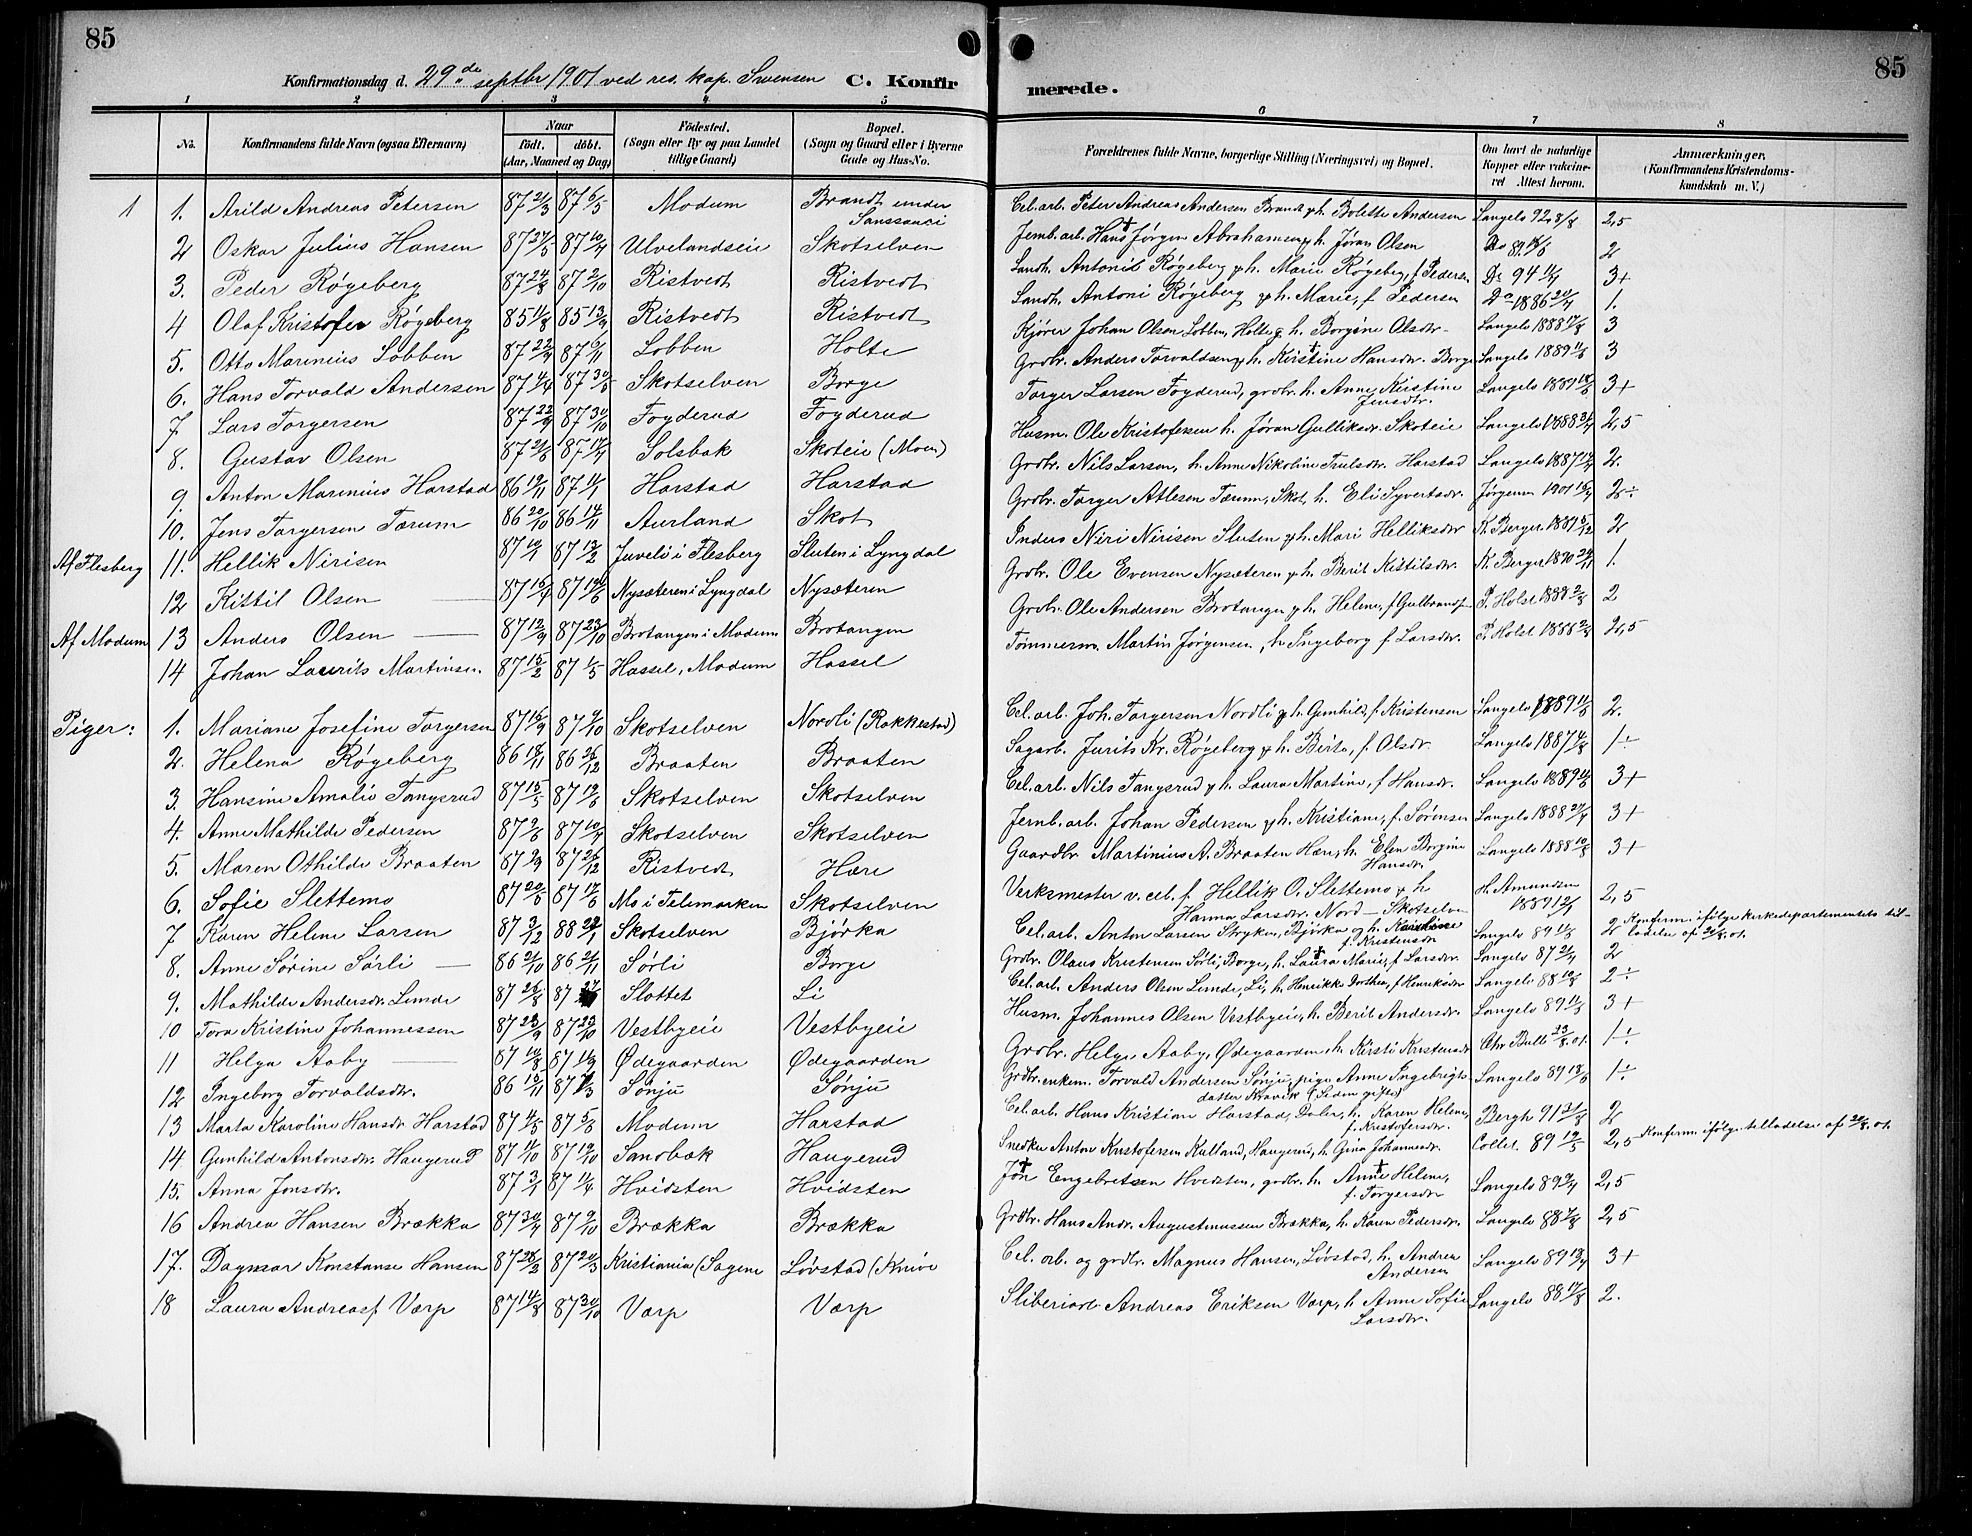 85
Konfirmationsdag d. 29de septbr 1901 ved res. kap. Svensen
C. Konfirmerede.
85
1 2 3 4 5 6 7 8
No.
Konfirmandens fulde Navn (ogsaa Efternavn)
Naar
født. døbt.
(Aar, Maaned og Dag)
Fødested.
(Sogn eller By og paa Landet tillige Gaard)
Bopæl.
(Sogn og Gaard eller i Byerne Gade og Hus-No.
Forældrenes fulde Navne, borgerlige Stilling (Næringsvei) og Bopæl.
Om havt de naturlige Kopper eller vakcineret Attest herom.
Anmærkninger.
(Konfirmandens Kristendomskundskab m. V.)
1 1. Arild Andreas Petersen 87 21/3 87 6/5 Modum Brandt under Sanssouci Cel. arb. Peter Andreas Andersen Brandt og h. Bolette Andersen Langelo 92 8/8 2,5
2 Oskar Julius Hansen 87 27/5 87 10/7 Ulvelandseie Skotselven Jernb. arb. Hans Jørgen Abrahamsen og h. Jøran Olsen Do 2
3. Peder Røgeberg 87 24/8 87 2/10 Ristvedt Ristvedt Landh. Antoni Røgeberg og h. Marie Røgeberg, f. Pedersen Do 94 3+
4 Olaf Kristofer Røgeberg 85 11/8 85 13/9 Ristvedt Ristvedt Landh. Antoni Røgeberg og h. Marie, f. Pedersen Do 1886 1.
5. Otto Marinius Lobben 87 22/9 87 6/11 Lobben Holte Kjører Johan Olsen Lobben, Holte og h. Borgine Olsdtr. Langelo 1888 17/8 3
6. Hans Torvald Andersen 87 4/4 87 30/5 Skotselven Borge Grdbr. Anders Torvaldsen og h. Kristine Hansdtr. Borge Langelo 1889 3
7 Lars Torgersen 87 22/9 87 30/10 Foyderud Foyderud Torger Larsen Foyderud, grdbr. h. Anne Kristine Jensdtr. Langelo 1889 3+
8. Gustav Olsen 87 Solsbak Skoteie (Moen) Husm. Ole Kristofersen h. Jøran Gulliksdr. Skoteie Langelo 1888 2,5
9 Anton Marinius Harstad 86 19/11 87 Harstad Harstad Grdbr. Nils Larsen, h. Anne Nikoline Trulsdtr. Harstad Langelo 1887 2.
10. Jens Torgersen Tærum 86 20/10 86 14/11 Aurland Skot Grdbr. Torger Atlesen Tærum, Skot, h. Eli Syvertsdr. Jørgensen 1901 2÷
Af Flesberg 11. Hellik Nirisen 87 10/1 87 13/2 Juveli i Flesberg Sluten i Lyngdal Inders Niri Nirisen Sluten og h. Mari Helliksdtr K. Berger 1889 2
12 Kittil Olsen 87 87 Nysæteren i Lyngdal Nysæteren Grdbr. Ole Evensen Nysæteren og h. Berit Kittilsdtr. K. Berger 1890 1.
Af Modum 13 Anders Olsen 87 12/9 87 23/10 Brotangen i Modum Brotangen Grdbr. Ole Andersen Brotangen og h. Helene, f. P. Holst 1888 2
14 Johan Laurits Martinsen. 87 15/2 87 1/5 Hassel, Modum Hassel Tømmerm. Martin Jørgensen, h. Ingeborg f. Larsdtr. P. Holst 1888 2,5
Piger: 1. Mariane Josefine Torgersen 87 87 9/10 Skotselven Nordli (Rakkestad) Cel. arb. Joh. Torgersen Nordli og h. Gunhild, f. Kristensen Langelo 1889 2.
2. Helena Røgeberg 86 18/11 86 26/12 Braaten Braaten Sagarb. Jurits Kr. Røgeberg og h. Birte, f. Olsdr. Langelo 1887 1÷
3. Hansine Amalie Tangerud 87 15/5 87 19/6 Skotselven Skotselven Cel. arb. Nils Tangerud og h. Laura Martine, f. Hansdr. Langelo 1889 3+
4. Anne Mathilde Pedersen 87 9/6 87 10/7 Skotselven Skotselven Jernb. arb. Johan Pedersen og h. Kristiane, f. Sørensen Langelo 1888 3+
5. Maren Othilde Braaten 87 87 26/12 Ristvedt Hære Gaardbr. Martinius A. Braaten Hære, h. Elen Borgine Hansdr. Langelo 1888 3+
6. Sofie Slettemo 87 87 Mo i Telemarken Skotselven Verksmester v. cel. f. Hellik O. Slettemo og h. Hanna Larsdtr. Nord - Skotselven H. Amundsen 1889 2,5
7 Karen Helene Larsen 87 3/12 88 Skotselven Bjørka Cel. arb. Anton Larsen Stryken, Bjørka og h. f. Kristensdtr Langelo 89 2 Konfirm. ifølge kirkedepartementets tilladelse af 01.
8. Anne Sørine Sørli 86 21/10 86 21/11 Sørli Borge Grdbr. Olaus Kristensen Sørli, Borge, h. Laura Marie, f. Larsdtr. Langelo 87 2
9. Mathilde Andersdtr. Lunde 87 26/8 87 Slottet Li Cel. arb. Anders Olsen Lunde, Li, h. Henrikke Dorthea, f. Henriksdtr Langelo 88 2÷
10 Tora Kristine Johannessen 87 87 23/10 Vestbyeie Vestbyeie Husm. Johannes Olsen Vestbyeie, h. Berit Andersdr. Langelo 89 3+
11 Helga Aaby 87 10/8 87 Ødegaarden Ødegaarden Grdbr. Helge Aaby, Ødegaarden, h. Kirsti Kristensdr Chr. Bull 01. 1÷
12 Ingeborg Torvaldsdtr. 86 15/11 87 Sønju Sønju Grdbr. enkem. Torvald Andersen Sønju, pige Anne Ingebrigtsdatter Kravik (siden gifte) Langelo 89 1÷
13 Marta Karoline Hansdr Harstad 87 4/5 87 Modum Harstad Cel. arb. Hans Kristian Harstad, Døler, h. Karen Helene, f. Kristofersdr. Bergh 91 2
14 Gunhild Antonsdr. Haugerud 87 11/10 87 Sandbæk Haugerud Snedker Anton Kristofersen Kulland, Haugerud, h. Gina Johannesdr. Collet 89 2,5 Konferm. ifølge tilladelse af 01.
15. Anna Jonsdtr. 87 3/1 87 Hvidsten Hvidsten Jon Engebretsen Hvidsten, grdbr. h. Anne Helene, f. Torgersdtr Langelo 89 2,5
16 Andrea Hansen Brækka 87 30/7 87 9/10 Brækka Brækka Grdbr. Hans Andr. Augustinussen Brækka, h. Karen Pedersdr. Langelo 88 2,5
17. Dagmar Konstanse Hansen 87 28/2 87 20/3 Kristiania (Sagene Løvstad (Knive Cel. arb. og grdbr. Magnus Hansen, Løvstad, h. Andrea Andersen Langelo 89 3+
18 Laura Andreasf Værp 87 14/8 87 30/10 Værp Værp Sliberiarb. Andreas Eriksen Værp, h. Anne Sofie Larsdtr. Langelo 88 17/8 2.